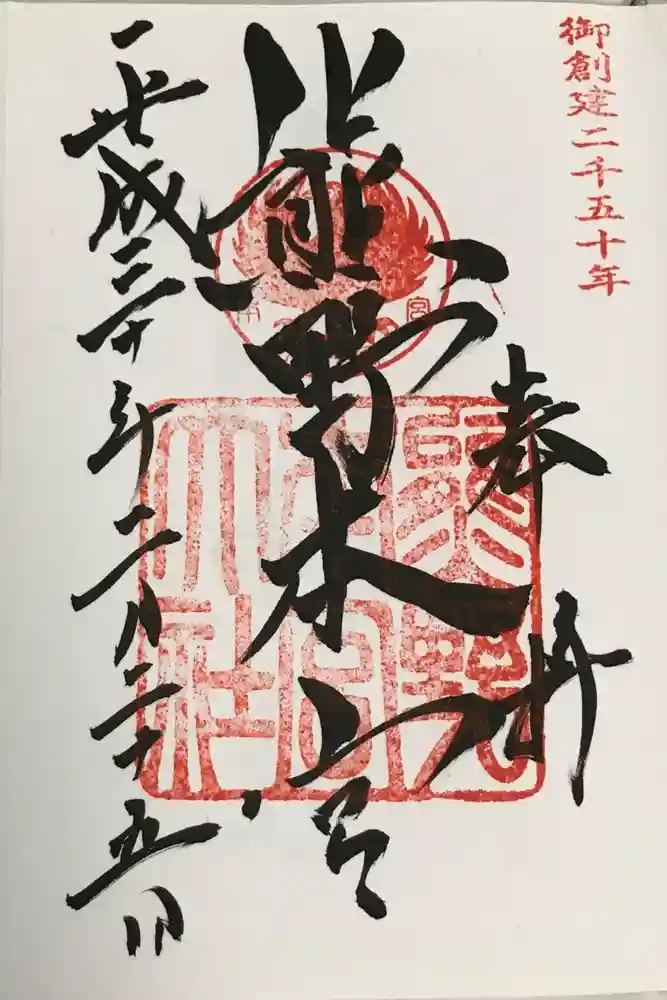 御創建二千五十年
奉拝
熊野本宮
平成三十年二月二十五日
熊野
本宮
大社